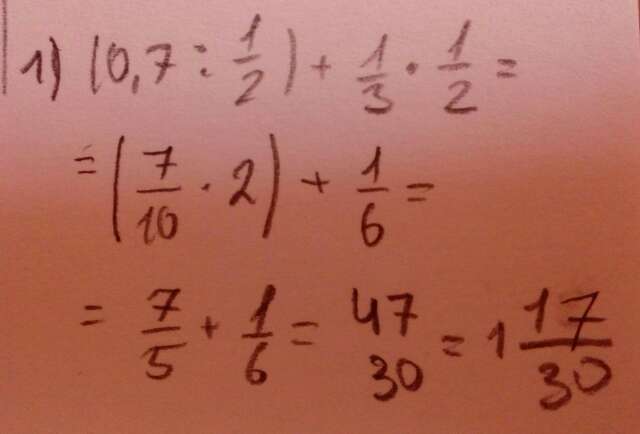 1) (0,7 : 1/2) + 1/3 · 1/2 =
= (7/10 · 2) + 1/6 =
= 7/5 + 1/6 = 47/30 = 1 17/30